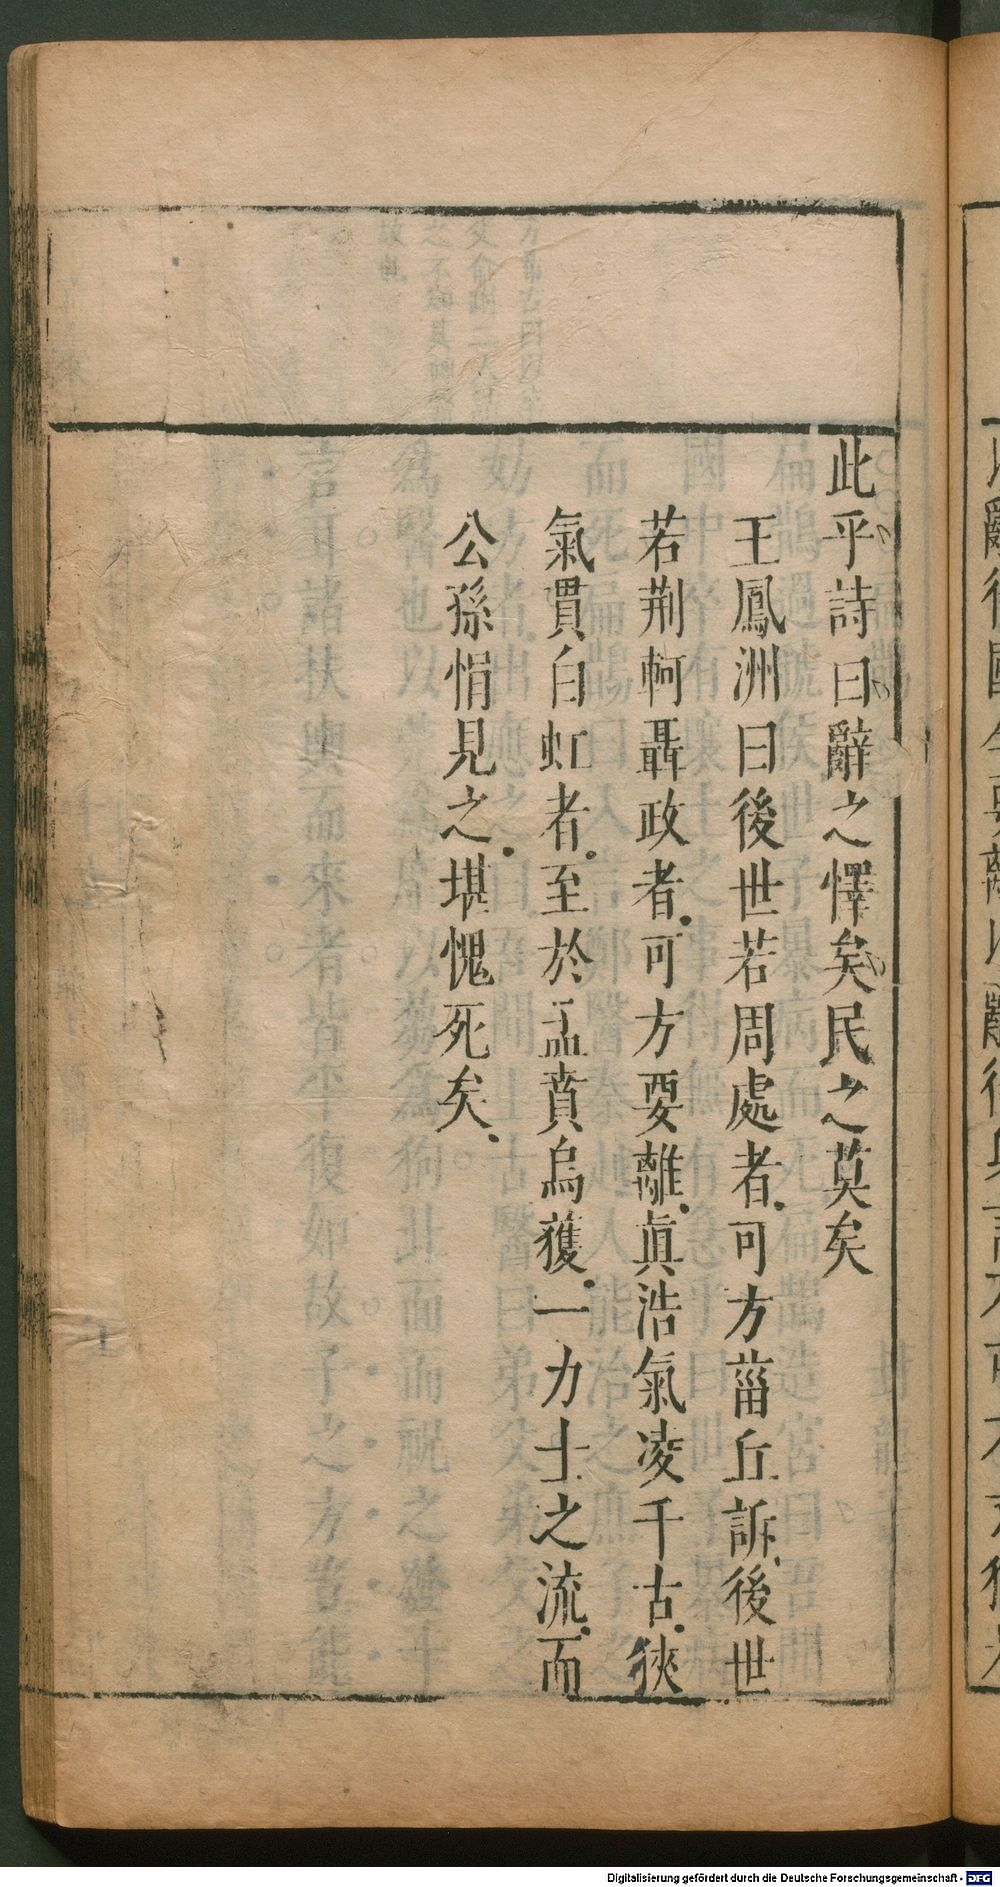 此乎詩曰辭之懌矣民之莫矣
王鳳洲曰後世若周處者可方菑丘訴後世
若荆軻聶政者可方要離眞浩氣凌千古狹
氣貫白虹者至於孟賁烏獲一力士之流而
公孫悁見之堪愧死矣
Digitalisierung gefördert durch die Deutsche Forschungsgemeinschaft - DFG